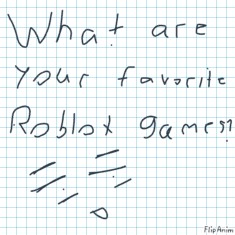 What are
your favorite
Roblox games?
FlipAnim